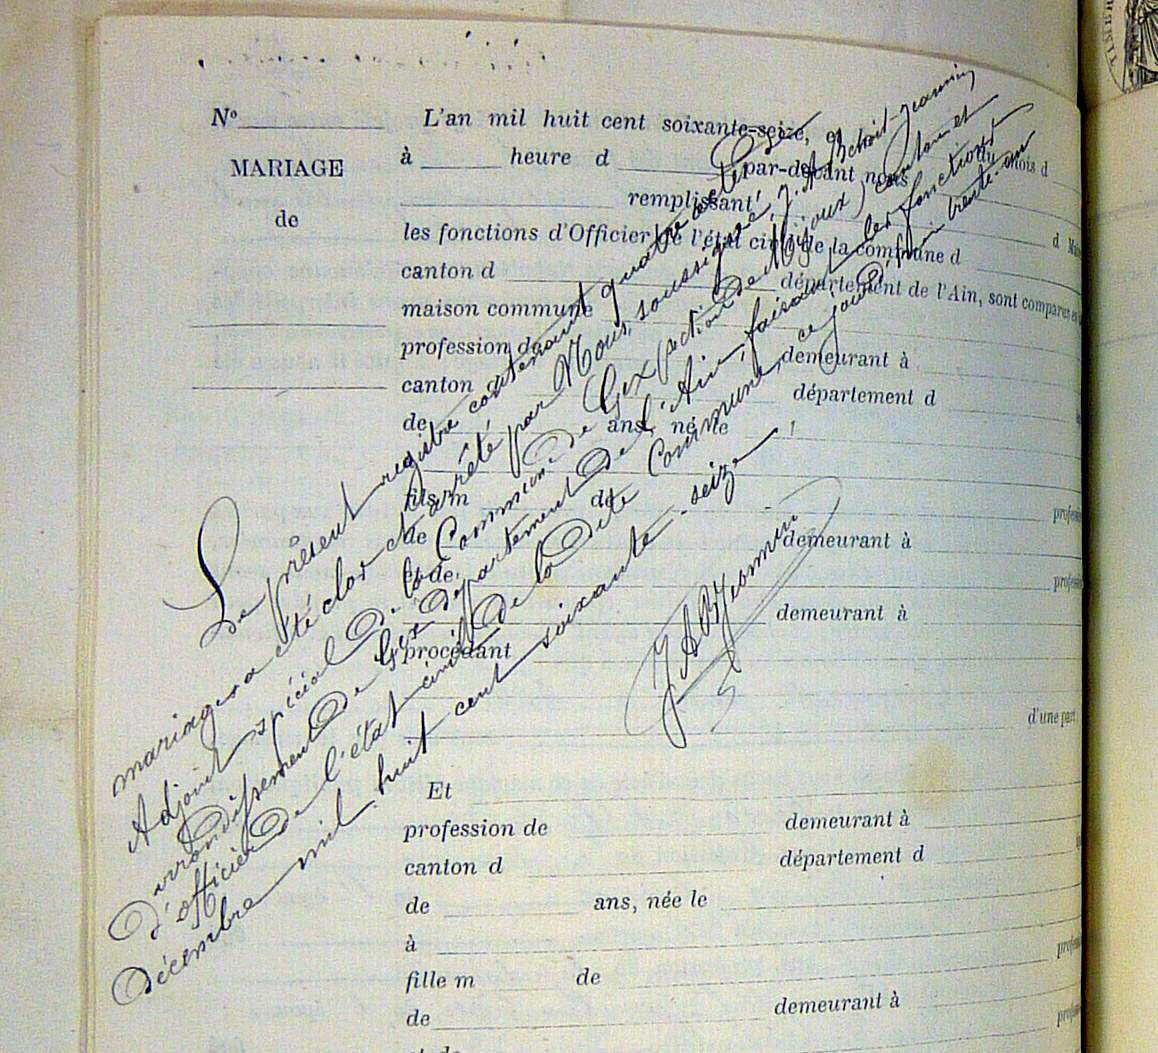 TIMBR
Nº
MARIAGE
de
L'an mil huit cent soixante-seize, et
du mois d
à heure d par-devant nous
remplissant
les fonctions d'Officier de l'état civil de la commune d
canton d département de l'Ain, sont comparus
d
maison commune
profession de demeurant à
canton département d
de ans, né le
fils m de
profes
de demeurant à
et de
profess
demeurant à
procédant
d'une part
Et
profession de demeurant à
canton d département d
de ans, née le
à
profess
fille m de
de demeurant à
profes
et de
Le présent registre contenant quatre actes de
mariage a été clos et arrêté par Nous, soussigné, J. A. Benoit-Jeannin
Adjoint spécial de la Commune de Gex (section de Mijoux) canton et
arrondissement de Gex Département de l'Ain, faisant les fonctions
d'officier de l'état civil de la dite Commune, ce jourd'hui trente-un
Décembre mil huit cent soixante-seize
J A BJeannin